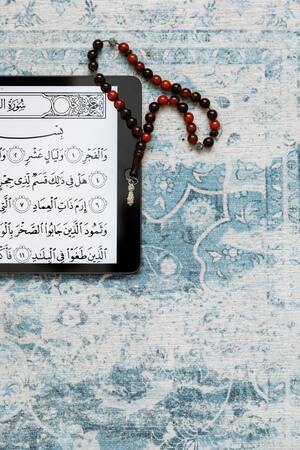 سُورَةُ
بِسْ
وَٱلْفَجْرِ ١ وَلَيَالٍ عَشْرٍ ٢ وَٱ
٤ هَلْ فِى ذَٰلِكَ قَسَمٌ لِّذِى حِجْرٍ
إِرَمَ ذَاتِ ٱلْعِمَادِ ٧ ٱلَّتِى
وَثَمُودَ ٱلَّذِينَ جَابُوا۟ ٱلصَّخْرَ بِٱلْوَ
ٱلَّذِينَ طَغَوْا۟ فِى ٱلْبِلَٰدِ ١١ فَأَكْ